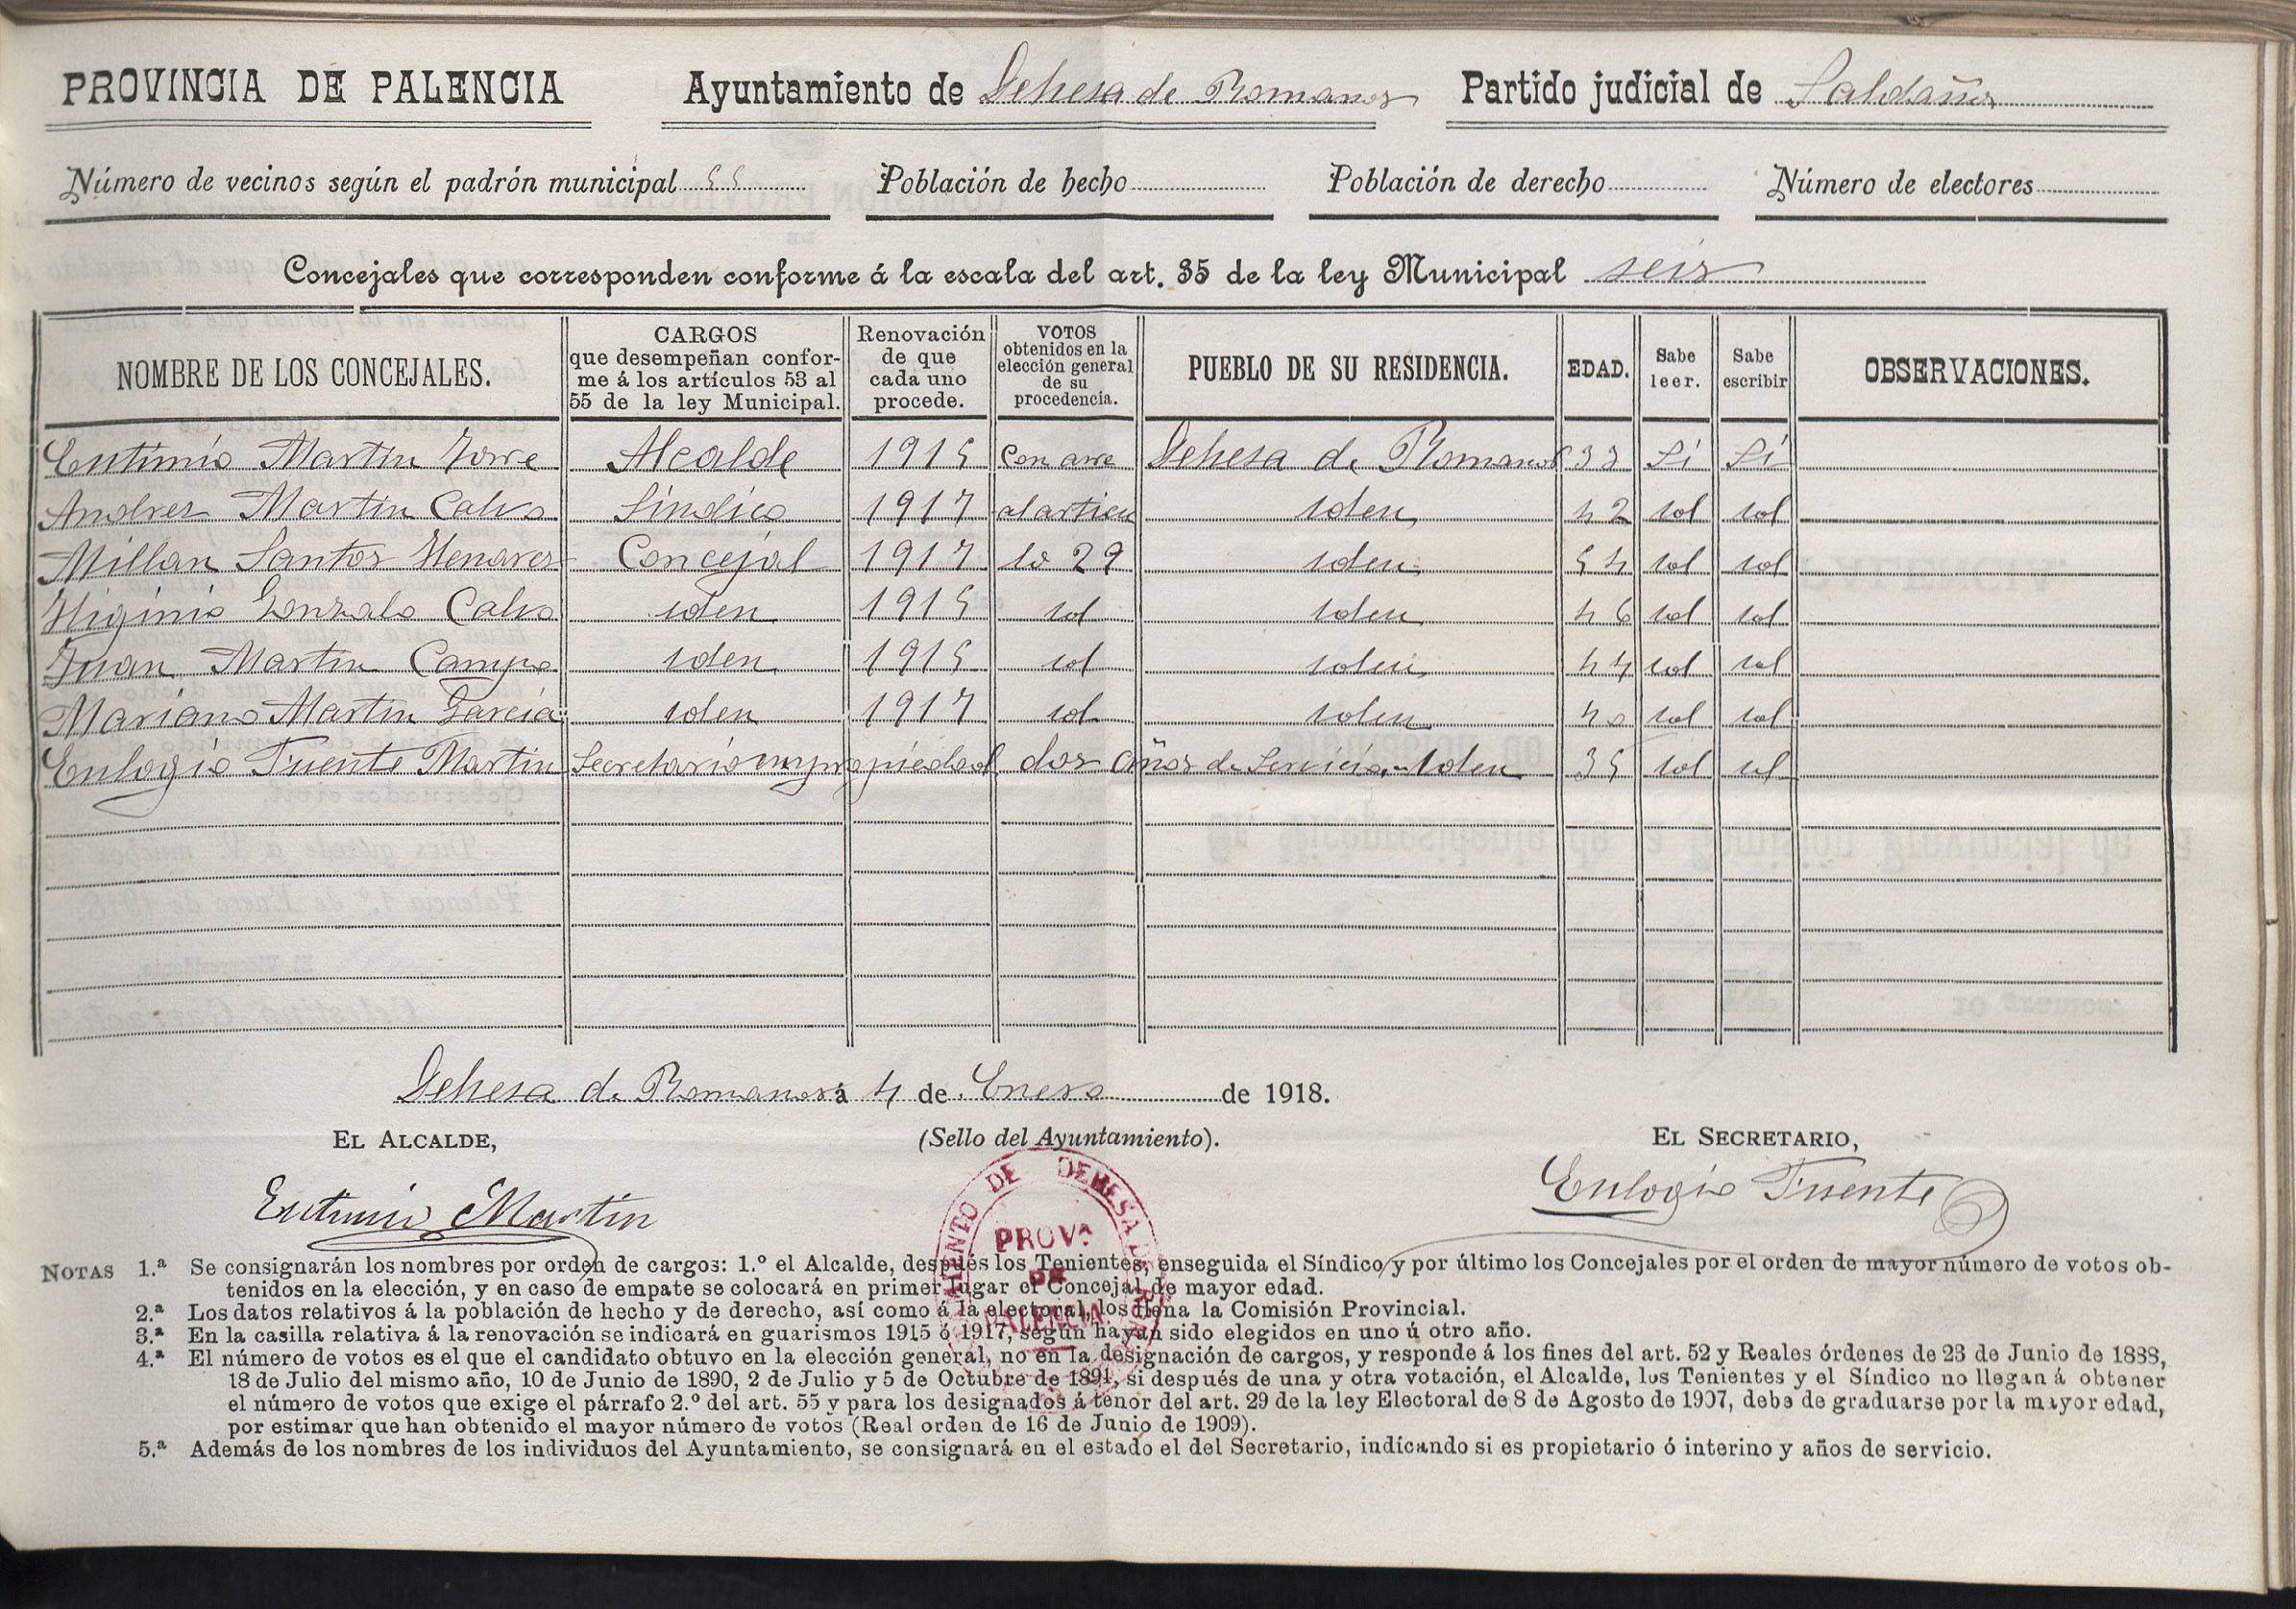 PROVINCIA DE PALENCIA Ayuntamiento de Dehesa de Romanos Partido judicial de Saldaña
Número de vecinos según el padrón municipal 55 Población de hecho Población de derecho Número de electores
Concejales que corresponden conforme á la escala del art. 35 de la ley Municipal seis
NOMBRE DE LOS CONCEJALES. CARGOS que desempeñan conforme á los artículos 53 al 55 de la ley Municipal. Renovación de que cada uno procede. VOTOS obtenidos en la elección general de su procedencia. PUEBLO DE SU RESIDENCIA. EDAD. Sabe leer. Sabe escribir OBSERVACIONES.
Eutimio Martin Torre Alcalde 1915 Con arre Dehesa de Romanos 33 Si Si
Andres Martin Calvo Sindico 1917 al articu iden 42 id id
Millan Santos Henares Concejal 1917 lo 29 iden 54 id id
Higinio Gonzalo Calvo iden 1915 id iden 46 id id
Juan Martin Campo iden 1915 id iden 44 id id
Mariano Martin Garcia iden 1917 id iden 40 id id
Eulogio Fuente Martin Secretario en propiedad dos años de Servicio iden 35 id id
Dehesa de Romanos á 4 de Enero de 1918.
EL ALCALDE, (Sello del Ayuntamiento). EL SECRETARIO,
Eutimio Martin Eulogio Fuente
DE DEHESA
PROVA
DE
PALENCIA
NOTAS 1.ª Se consignarán los nombres por orden de cargos: 1.º el Alcalde, después los Tenientes, enseguida el Síndico y por último los Concejales por el orden de mayor número de votos ob-
tenidos en la elección, y en caso de empate se colocará en primer lugar el Concejal de mayor edad.
2.ª Los datos relativos á la población de hecho y de derecho, así como á la electoral, los llena la Comisión Provincial.
3.ª En la casilla relativa á la renovación se indicará en guarismos 1915 ó 1917, según hayan sido elegidos en uno ú otro año.
4.ª El número de votos es el que el candidato obtuvo en la elección general, no en la designación de cargos, y responde á los fines del art. 52 y Reales órdenes de 23 de Junio de 1888,
18 de Julio del mismo año, 10 de Junio de 1890, 2 de Julio y 5 de Octubre de 1891, si después de una y otra votación, el Alcalde, los Tenientes y el Síndico no llegan á obtener
el número de votos que exige el párrafo 2.º del art. 55 y para los designados á tenor del art. 29 de la ley Electoral de 8 de Agosto de 1907, debe de graduarse por la mayor edad,
por estimar que han obtenido el mayor número de votos (Real orden de 16 de Junio de 1909).
5.ª Además de los nombres de los individuos del Ayuntamiento, se consignará en el estado el del Secretario, indicando si es propietario ó interino y años de servicio.